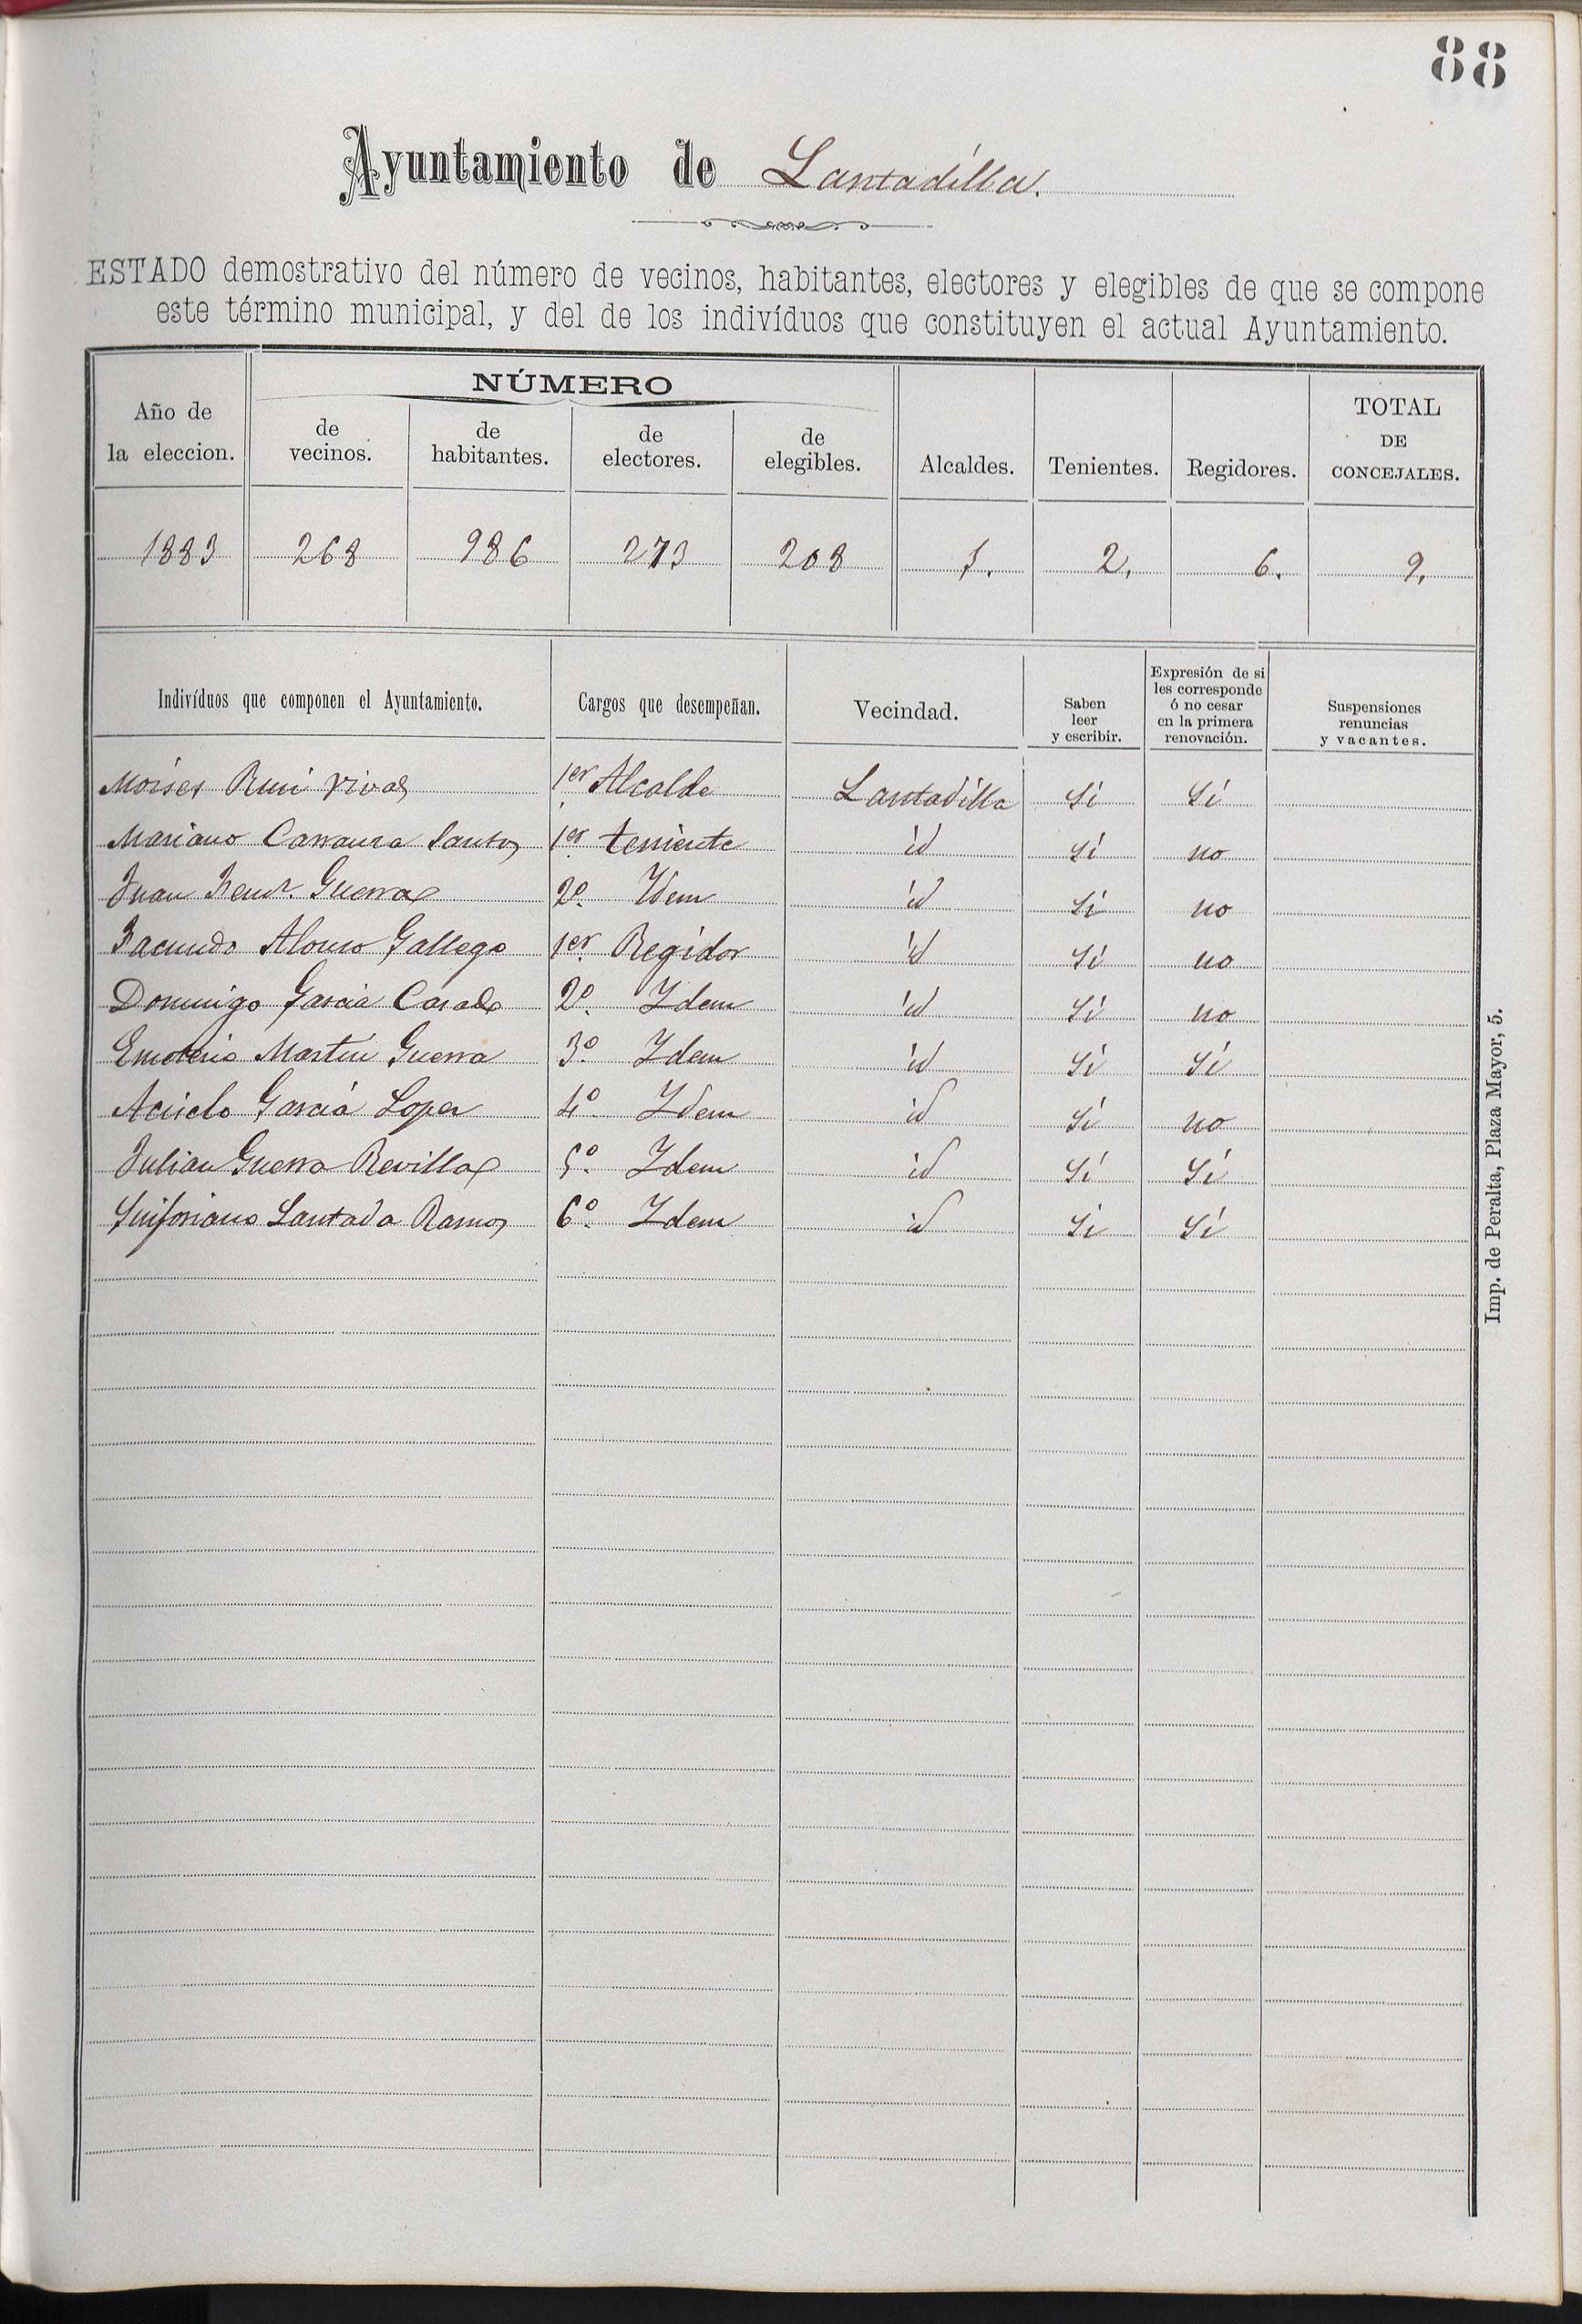 88
Ayuntamiento de Lantadilla.
ESTADO demostrativo del número de vecinos, habitantes, electores y elegibles de que se compone
este término municipal, y del de los indivíduos que constituyen el actual Ayuntamiento.
Año de la eleccion. NÚMERO de vecinos. de habitantes. de electores. de elegibles. Alcaldes. Tenientes. Regidores. TOTAL DE CONCEJALES.
1883 268 986 273 208 1. 2. 6. 9.
Indivíduos que componen el Ayuntamiento. Cargos que desempeñan. Vecindad. Saben leer y escribir. Expresión de si les corresponde ó no cesar en la primera renovación. Suspensiones renuncias y vacantes.
Moises Ruiz Vivas 1er Alcalde Lantadilla Si Si
Mariano Carranza Santos 1er teniente id Si no
Juan Guerra 2º Idem id Si no
Facundo Alonso Gallego 1er Regidor id Si no
Domingo Garcia Casado 2º Idem id Si no
Emeterio Martin Guerra 3º Idem id Si Si
Acisclo Garcia Lopez 4º Idem id Si no
Julian Guerra Revilla 5º Idem id Si Si
Sinforiano Lantada Ramos 6º Idem id Si Si
Imp. de Peralta, Plaza Mayor, 5.